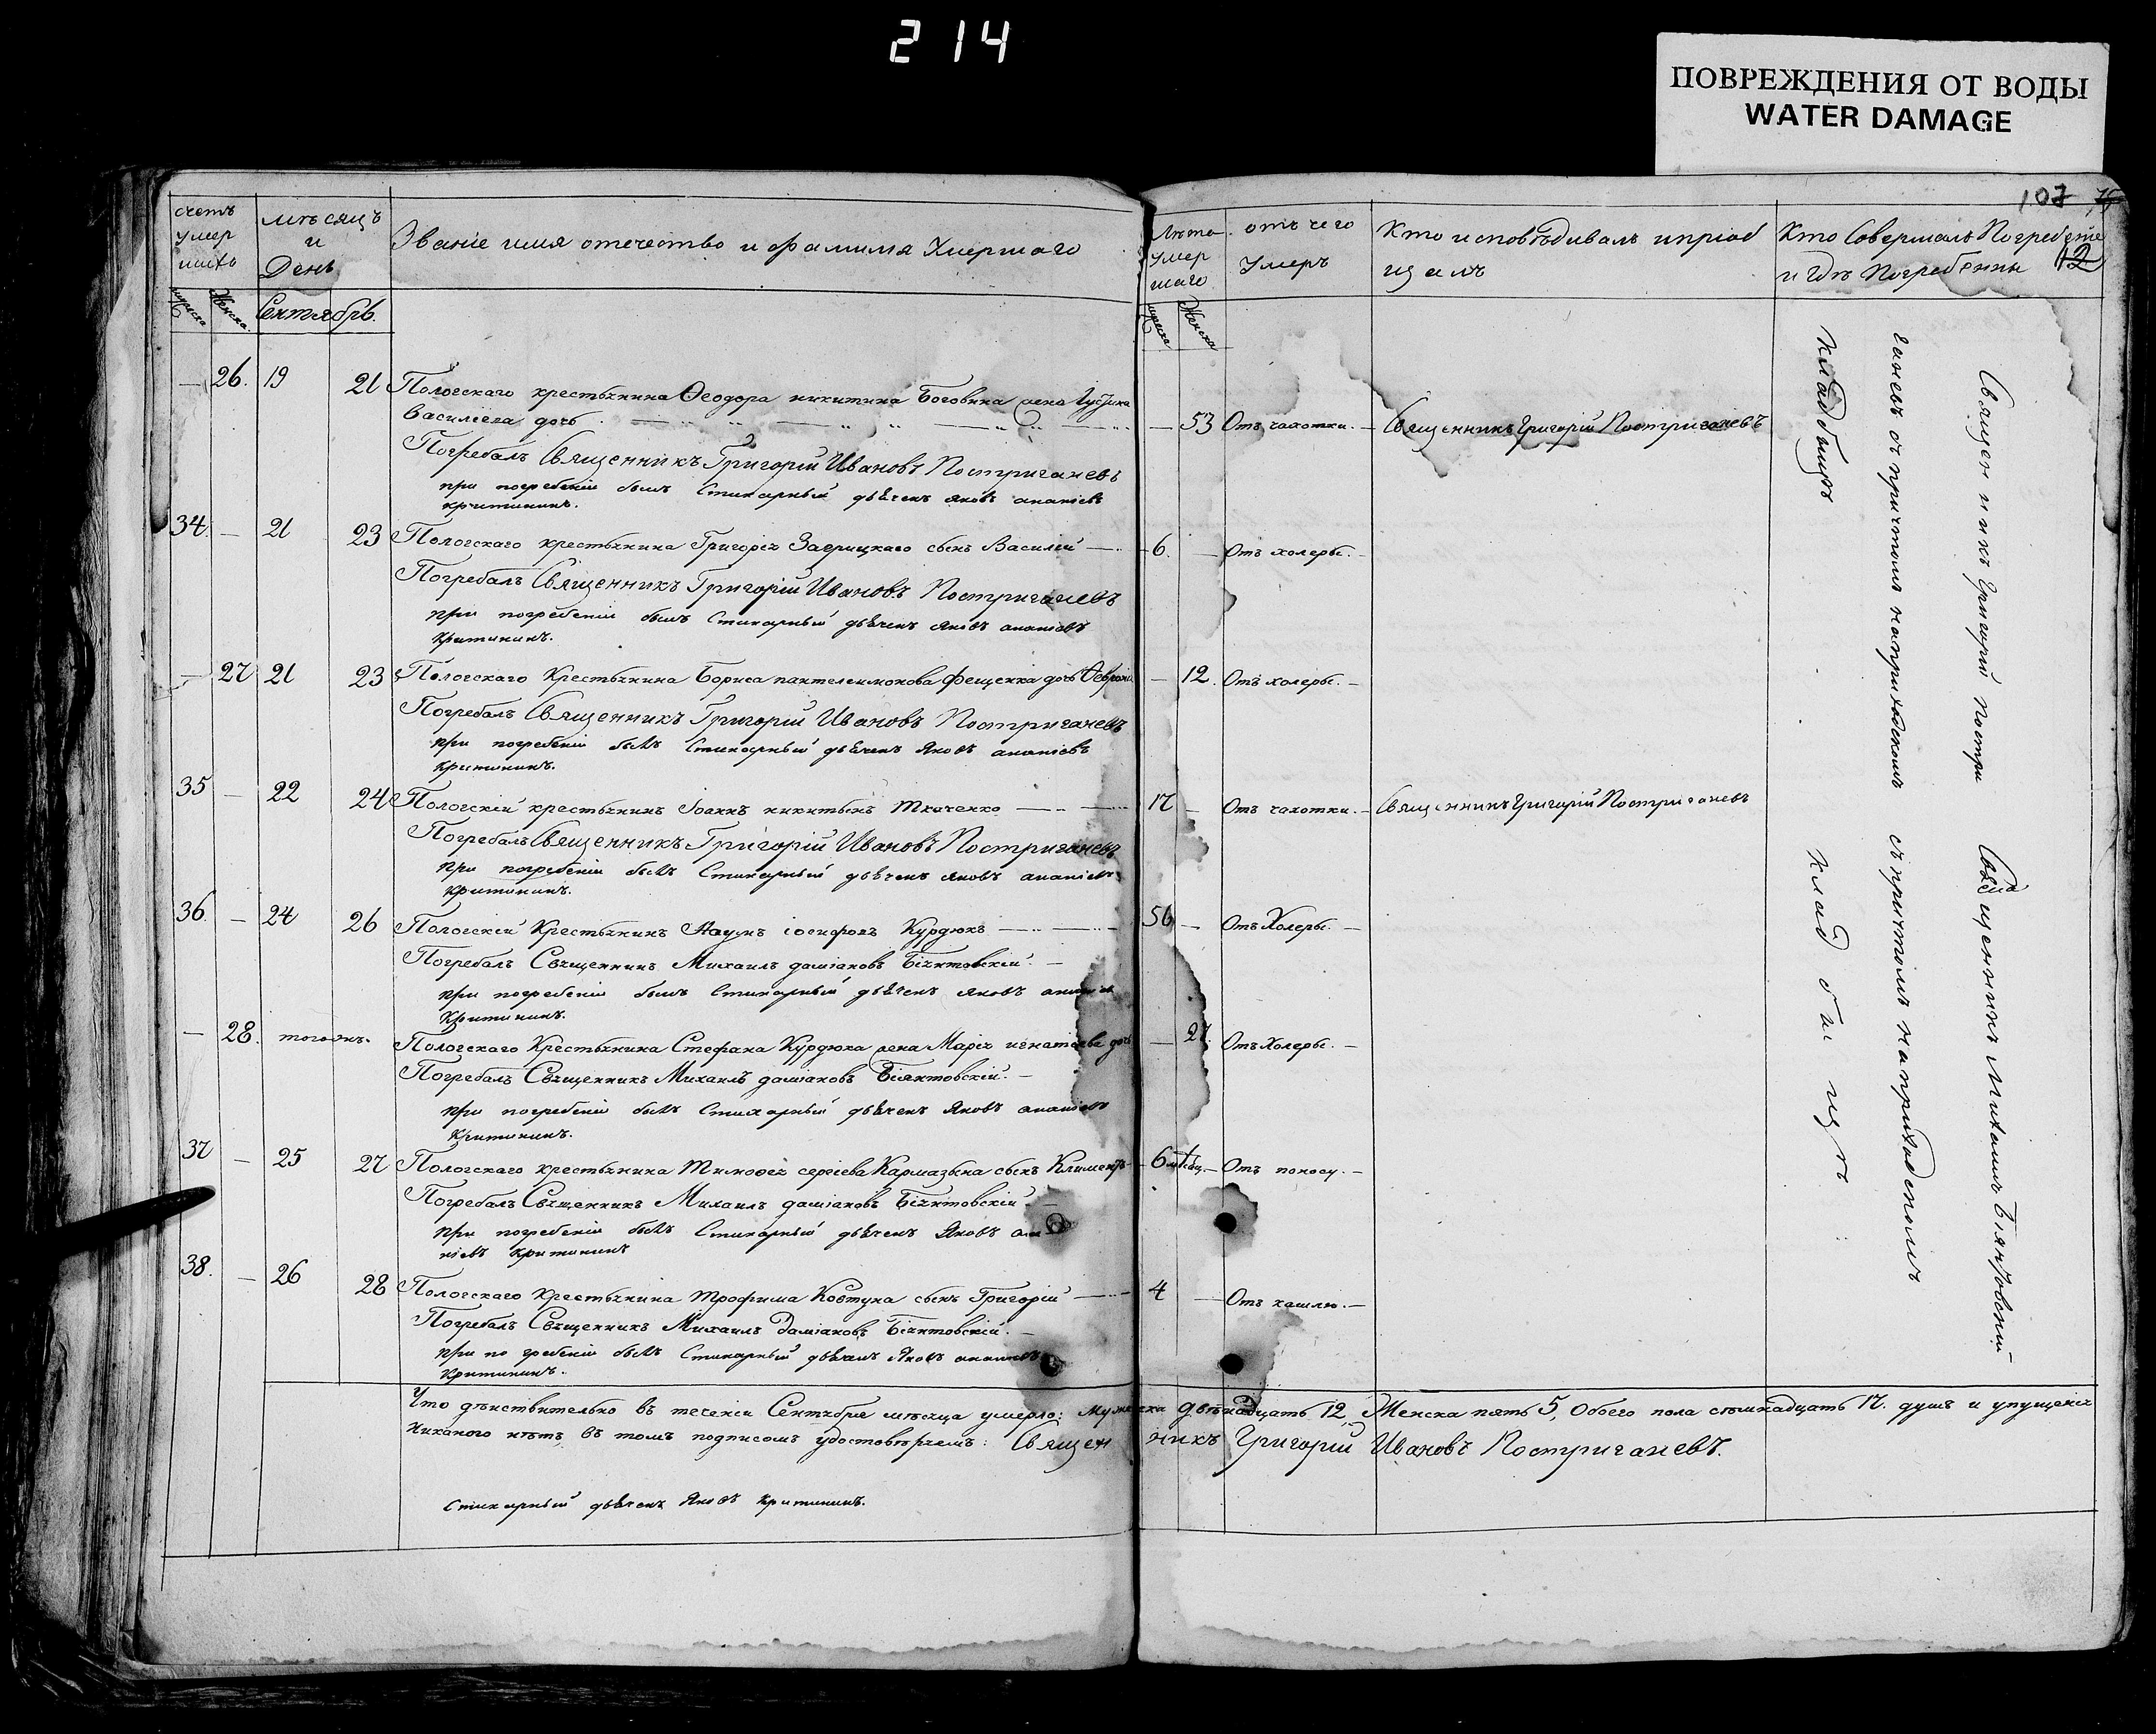 214
ПОВРЕЖДЕНИЯ ОТ ВОДЫ
WATER DAMAGE
107
12
счетъ умер шихъ
мѣсяцъ и День
Званіе имя отечество и фамилія Умершаго
Лѣта умер шаго
отъ чего Умеръ
Кто исповѣдивалъ и пріоб щалъ
Кто Совершалъ Погребеніе и Гдѣ Погребенны
мужеска Женска
Сентябрь.
мужеска Женска
— 26. 19 21 Пологскаго крестьянина Ѳеодора никитина Боговина жена
Василіева дочь — 53 Отъ чахотки. — Священникъ Григорій Постригачевъ
Погребалъ Священникъ Григорій Ивановъ Постригачевъ
при погребеніи былъ Стихарный дьячекъ Яковъ ананіевъ
критининъ.
34. — 21 23 Пологскаго крестьянина Григорія Заерицкаго сынъ Василій — 6. — Отъ холеры. —
Погребалъ Священникъ Григорій Ивановъ Постригачевъ
при погребеніи былъ Стихарный дьячекъ Яковъ ананіевъ
Критининъ.
— 27 21 23 Пологскаго Крестьянина Бориса пантелеимонова Фещенка дочь — 12. Отъ холеры. —
Погребалъ Священникъ Григорій Ивановъ Постригачевъ
при погребеніи былъ Стихарный дьячекъ Яковъ ананіевъ
Критининъ.
35 — 22 24 Пологскій крестьянинъ Іоаннъ никитынъ Ткаченко — 17 — Отъ чахотки. — Священникъ Григорій Постригачевъ
Погребалъ Священникъ Григорій Ивановъ Постригачевъ
при погребеніи былъ Стихарный дьячекъ Яковъ ананіевъ
Критининъ.
36. — 24 26 Пологскій Крестьянинъ Наумъ іосифовъ Курдюкъ — 56 — Отъ Холеры. —
Погребалъ Священникъ Михаилъ даміановъ Біянтовскій. —
при погребеніи былъ Стихарный дьячекъ Яковъ
Критининъ.
— 28. тогожъ. Пологскаго Крестьянина Стефана Курдюка жена Марія игнатіева дочь — 27. Отъ Холеры. —
Погребалъ Священникъ Михаилъ даміановъ Біянтовскій. —
при погребеніи былъ Стихарный дьячекъ Яковъ ананіевъ
Критининъ.
37 — 25 27 Пологскаго крестьянина Тимофея сергіева Кармазына сынъ Климентъ — 6 мѣсяц. — Отъ поносу. —
Погребалъ Священникъ Михаилъ даміановъ Біянтовскій —
при погребеніи былъ Стихарный дьячекъ Яковъ ана
ніевъ Критининъ
38. — 26 28 Пологскаго Крестьянина Трофима Ковтуна сынъ Григорій — 4 — Отъ кашлю. —
Погребалъ Священникъ Михаилъ Даміановъ Біянтовскій. —
при по гребеніи былъ Стихарный дьячекъ Яковъ ананіевъ
Критининъ.
Священникъ Григорій Постри
гачевъ съ причтомъ на приходскомъ
кладбищѣ
Священникъ Михаилъ Біянтовскій
съ причтомъ на приходскомъ
кладбищѣ
Что дѣйствительно въ теченіи Сентября мѣсяца умерло: Мужеска двѣнадцать 12, Женска пять 5, Обоего пола сѣмнадцать 17. душъ и упущенія
никакого нѣтъ, въ томъ подписомъ удостовѣряемъ: Священникъ Григорій Ивановъ Постригачевъ.
Стихарный дьячекъ Яковъ Критининъ.